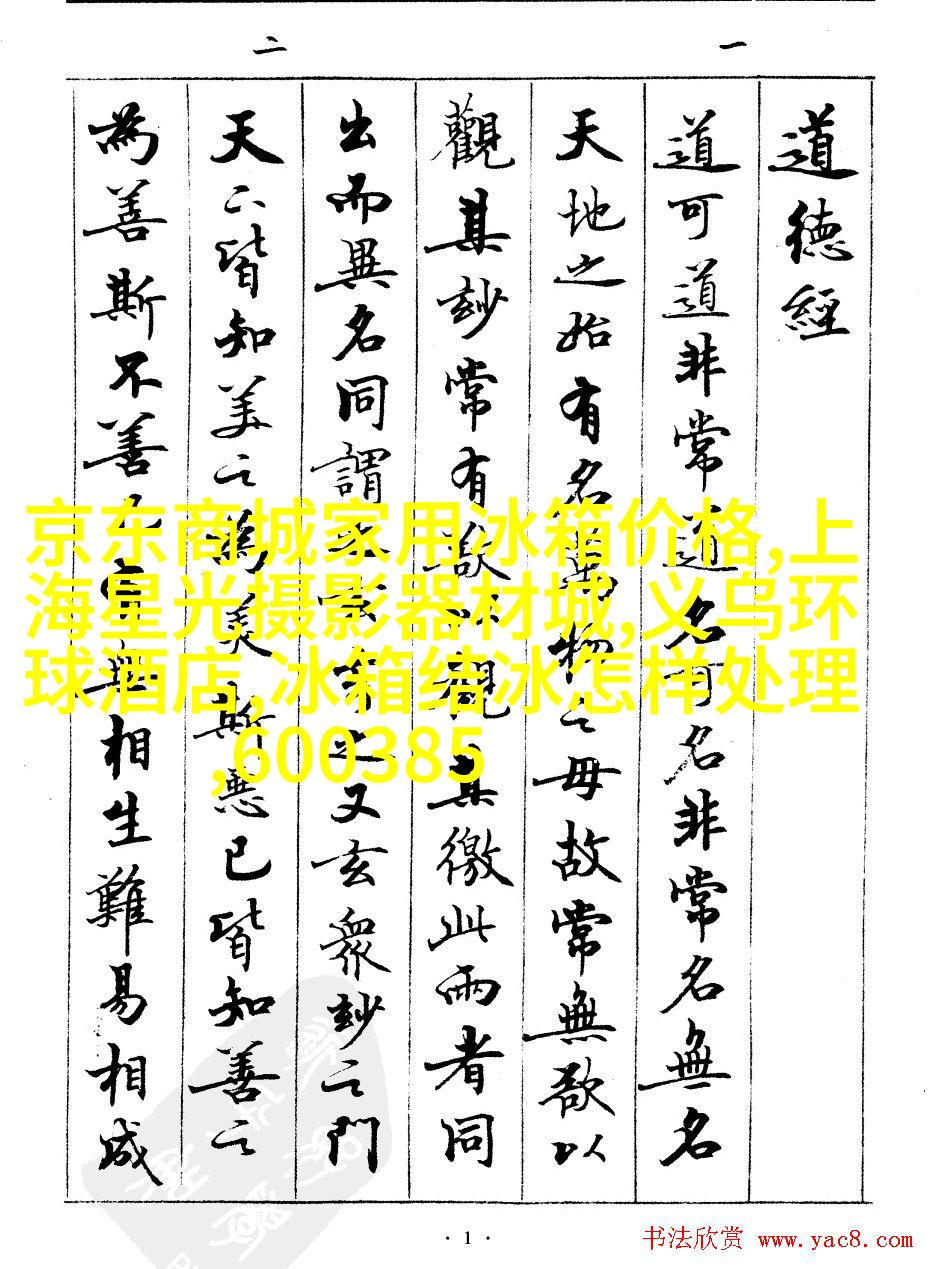 一
二
道德經
道可道非常道名可名非常名無名
天地之始有名萬物之母故常無欲以
觀其玅常有欲以觀其徼此兩者同
出而異名同謂之玄玄之又玄眾玅之門
天下皆知美之為美斯惡已皆知善之
為善斯不善已有無相生難易相成
京东商城家用冰箱价格,上
海星光摄影器材城,义乌环
球酒店,冰箱结冰怎样处理
,600385
· 1 ·
书法欣赏 www.yac8.com